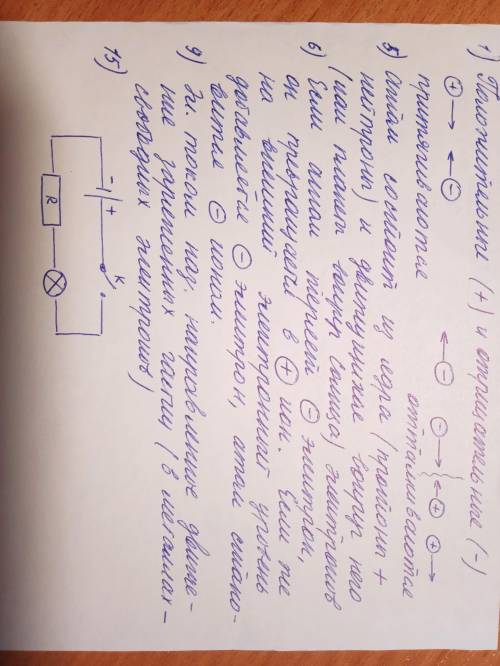 1) Положительные (+) и отрицательные (-)
притягиваются отталкиваются
⊕→ ←⊖ ←⊖ ⊖→ ←⊕ ⊕→
5) Атом состоит из ядра (протоны +
нейтроны) и движущихся вокруг него
(как планеты вокруг Солнца) электронов
6) Если атом теряет ⊖ электрон,
он превращается в ⊕ ион. Если же
на внешний электронный уровень
добавляется ⊖ электрон, атом стано-
вится ⊖ ионом.
9) Эл. током наз. направленное движе-
ние заряженных частиц (в металлах -
свободных электронов)
15)
- +
K
R